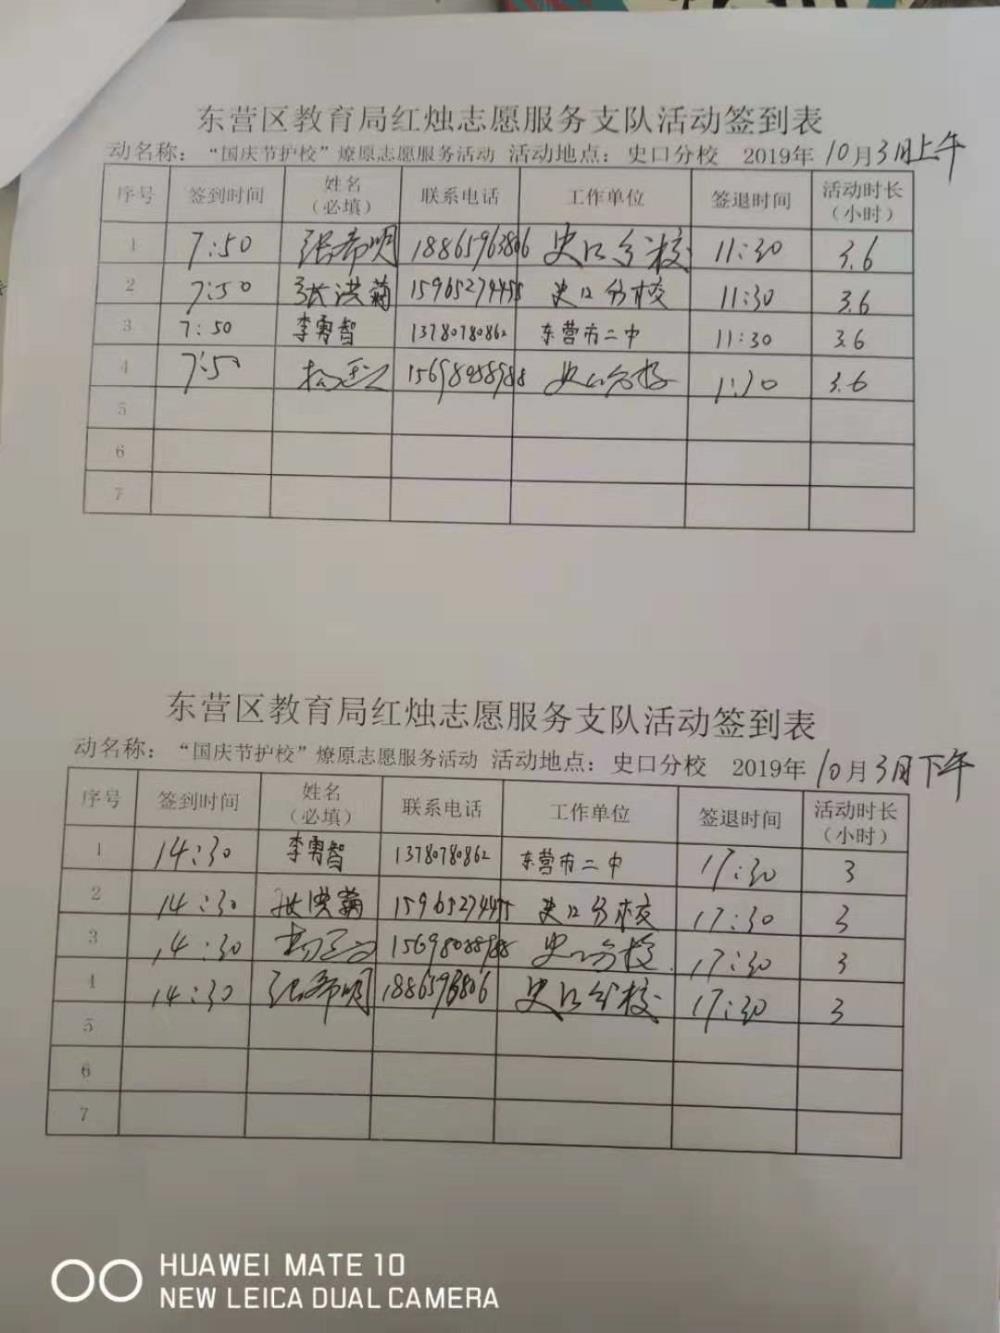 东营区教育局红烛志愿服务支队活动签到表
动名称：“国庆节护校”燎原志愿服务活动 活动地点：史口分校 2019年10月3日上午
序号 签到时间 姓名（必填） 联系电话 工作单位 签退时间 活动时长（小时）
1 7:50 张希明 18865963806 史口分校 11:30 3.6
2 7:50 张洪菊 15965274455 史口分校 11:30 3.6
3 7:50 李勇智 13780780862 东营市二中 11:30 3.6
4 7:50 史口分校 3.6
5
6
7
东营区教育局红烛志愿服务支队活动签到表
动名称：“国庆节护校”燎原志愿服务活动 活动地点：史口分校 2019年10月3日下午
序号 签到时间 姓名（必填） 联系电话 工作单位 签退时间 活动时长（小时）
1 14:30 李勇智 13780780862 东营市二中 17:30 3
2 14:30 张洪菊 15965274455 史口分校 17:30 3
3 14:30 史口分校 17:30 3
4 14:30 张希明 史口分校 17:30 3
5
6
7
HUAWEI MATE 10
NEW LEICA DUAL CAMERA